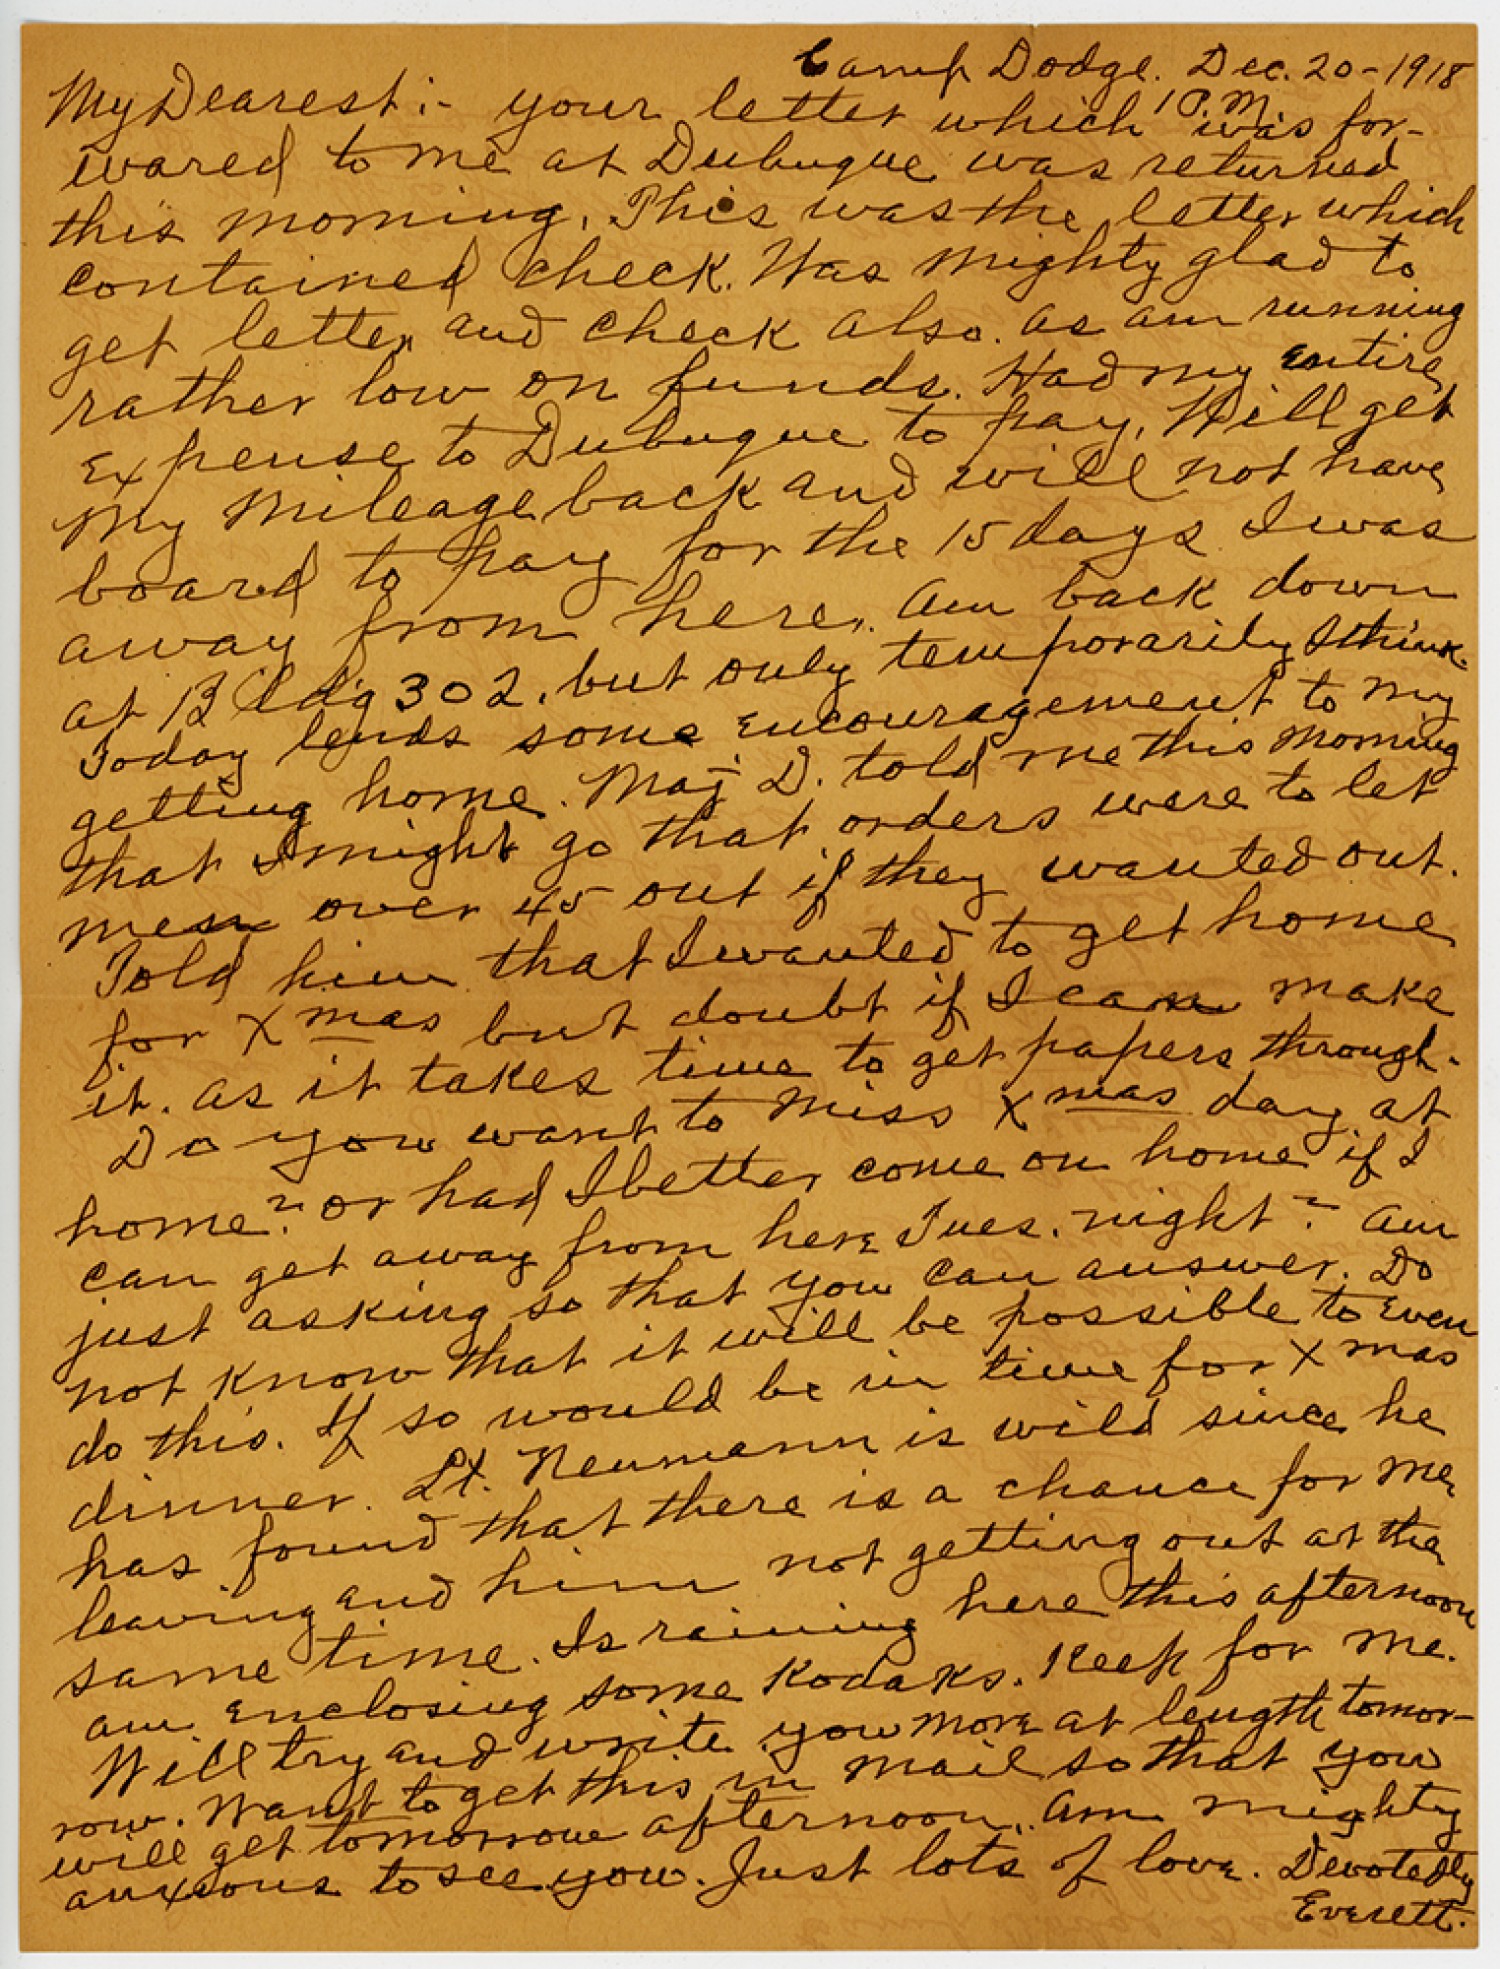 Camp Dodge. Dec. 20-1918
1 P.M.
My Dearest:- your letter which was for-
wared to me at Dubuque was returned
this morning. This was the letter which
contained check. Was mighty glad to
get letter and check also. as am running
rather low on funds. Had my entire
expense to Dubuque to pay. Will get
my mileage back and will not have
board to pay for the 15 days I was
away from here. Am back down
at Bldg 302. but only temporarily I think.
Today lends some encouragement to my
getting home. Maj D. told me this morning
that I might go that orders were to let
men over 45 out if they wanted out.
Told him that I wanted to get home
for Xmas but doubt if I can make
it. as it takes time to get papers through.
Do you want to miss Xmas day at
home? or had I better come on home if I
can get away from here Tues. night? Am
just asking so that you can answer. Do
not know that it will be possible to even
do this. If so would be in time for Xmas
dinner. Lt. Neumann is wild since he
has found that there is a chance for me
leaving and him not getting out at the
same time. Is raining here this afternoon
am enclosing some Kodaks. Keep for me.
Will try and write you more at length tomor-
row. Want to get this in mail so that you
will get tomorrow afternoon. Am mighty
anxious to see you. Just lots of love. Devotedly
Everett.